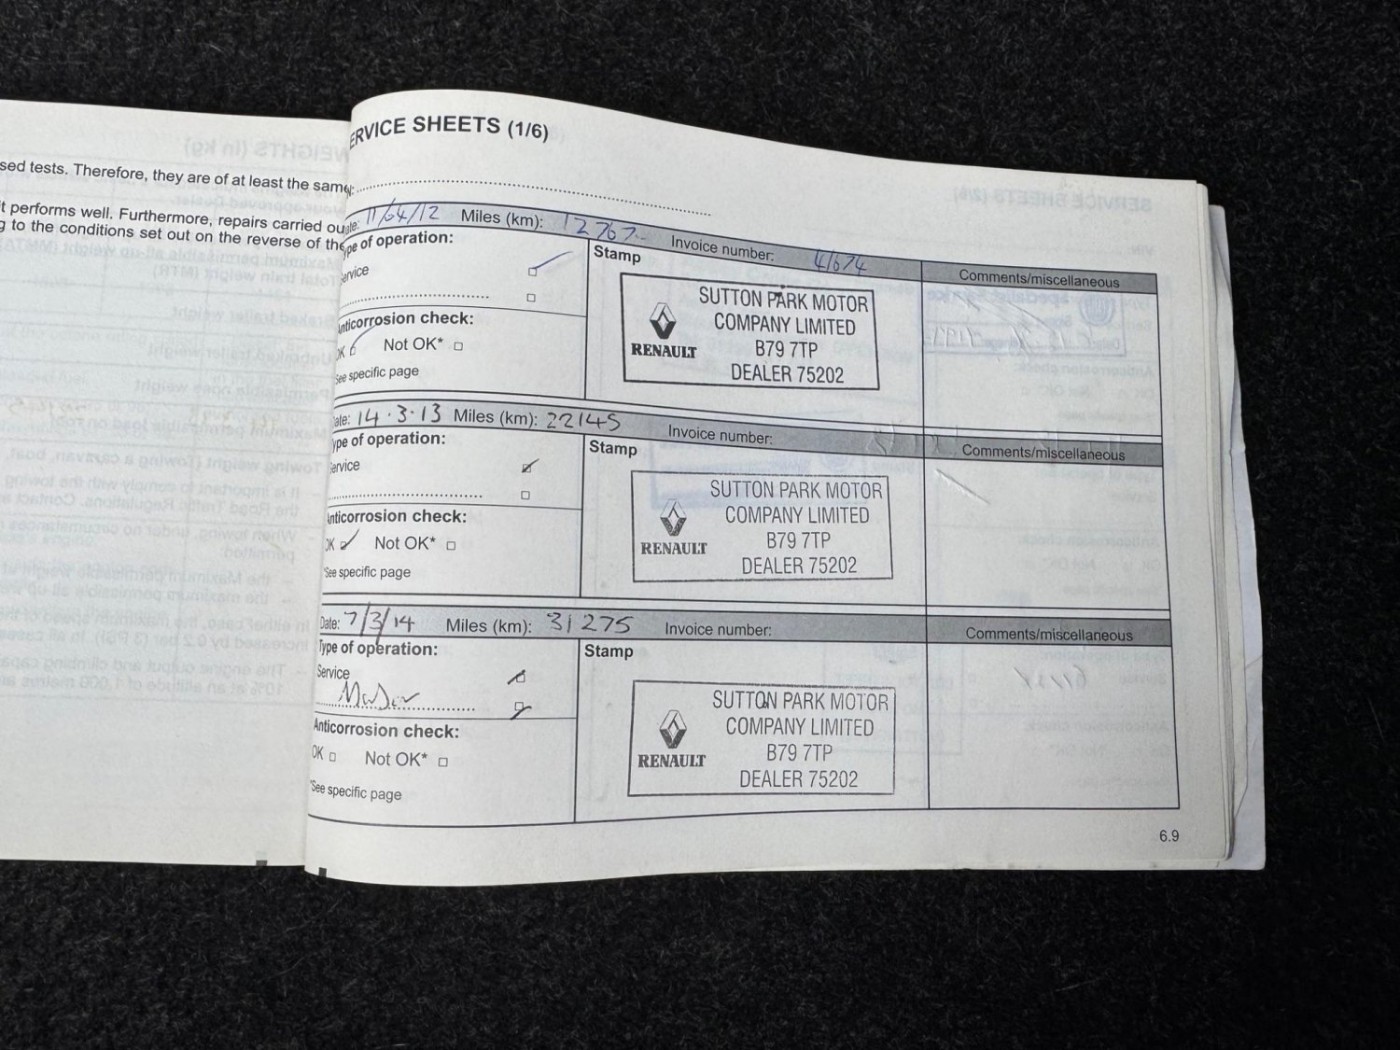 sed tests. Therefore, they are of at least the same
t performs well. Furthermore, repairs carried ou
g to the conditions set out on the reverse of the
ERVICE SHEETS (1/6)
Date: 11/04/12 Miles (km): 12767 Invoice number: 41674
ype of operation:
ervice
Stamp
Comments/miscellaneous
SUTTON PARK MOTOR
COMPANY LIMITED
B79 7TP
DEALER 75202
RENAULT
Anticorrosion check:
OK Not OK*
See specific page
Date: 14.3.13 Miles (km): 22145 Invoice number:
ype of operation:
ervice
Stamp
Comments/miscellaneous
SUTTON PARK MOTOR
COMPANY LIMITED
B79 7TP
DEALER 75202
RENAULT
Anticorrosion check:
OK Not OK*
See specific page
Date: 7/3/14 Miles (km): 31275 Invoice number:
Type of operation:
Service
Stamp
Comments/miscellaneous
SUTTON PARK MOTOR
COMPANY LIMITED
B79 7TP
DEALER 75202
RENAULT
Anticorrosion check:
OK Not OK*
*See specific page
6.9